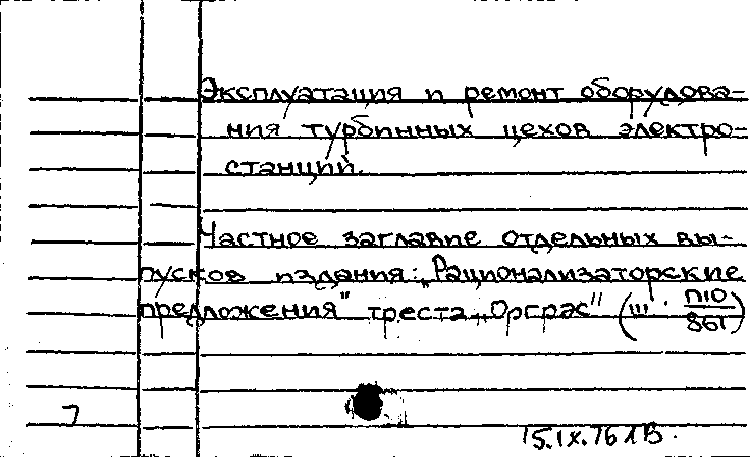 Эксплуатация и ремонт оборудова-
ния турбинных цехов электро-
станций.
Частное заглавие отдельных вы-
пусков издания: „Рационализаторские
предложения" треста „Оргрэс" (Ш · П10/861)
7
15.IX.76 ЛВ.